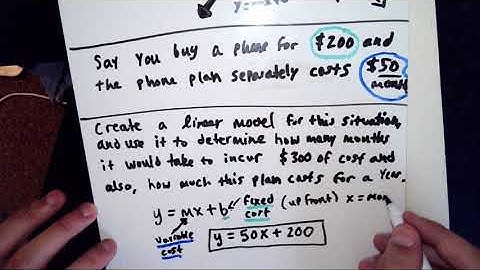 Say you buy a phone for $200 and
the phone plan separately costs $50
month
Create a linear model for this situation
and use it to determine how many months
it would take to incur $300 of cost and
also, how much this plan costs for a year.
y = mx + b fixed cost (up front) x = mon
variable cost
y = 50x + 200